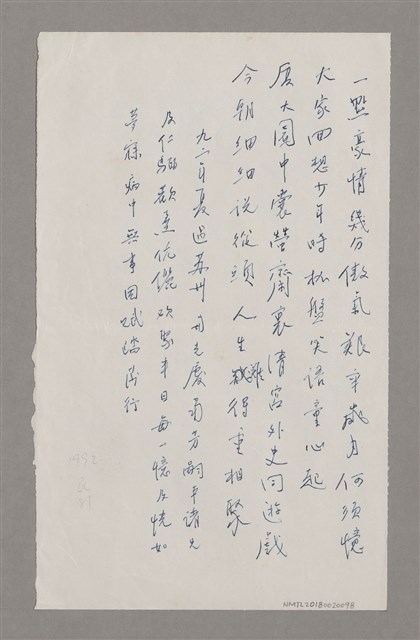 一點豪情幾分傲氣艱辛歲月何須憶
大家回想少年時杯盤笑語童心起
廈大園中囊螢齋裏清宮外史同遊戲
今朝細細說從頭人生難得重相聚
九二年夏過蘇州與克慶菊芳嗣平諸兄
及仁 歡 伉儷欢聚半日每一憶及恍如
夢寐病中無事因賦踏莎行
1992
NMTL20180020098